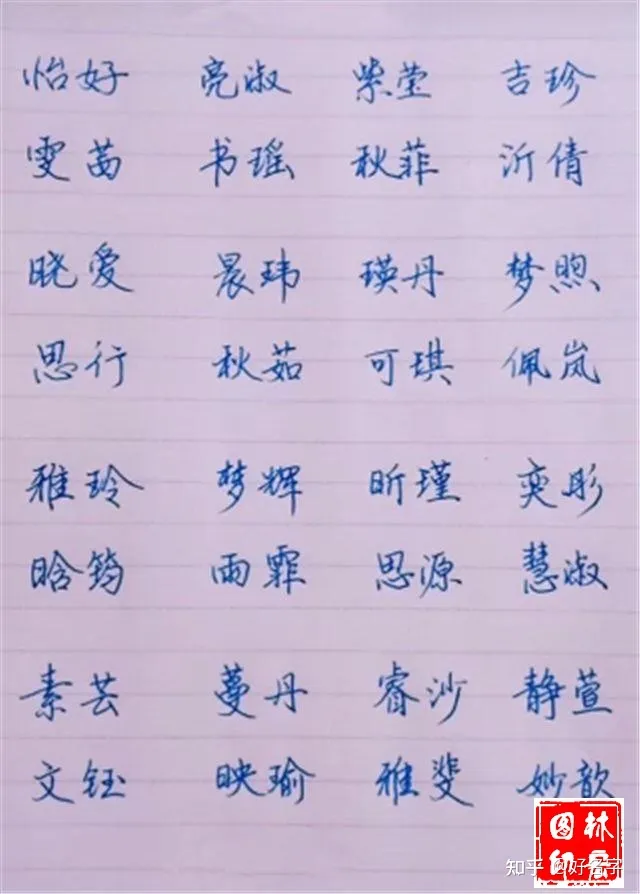 怡好 亮淑 紫莹 吉珍
雯茜 书瑶 秋菲 沂倩
晓爱 晨玮 瑛丹 梦煦
思行 秋茹 可琪 佩岚
雅玲 梦辉 昕瑾 奕彤
晗筠 雨霏 思源 慧淑
素芸 蔓丹 睿沙 静萱
文钰 映瑜 雅斐 妙歆
图林
印象
知乎 @好名字